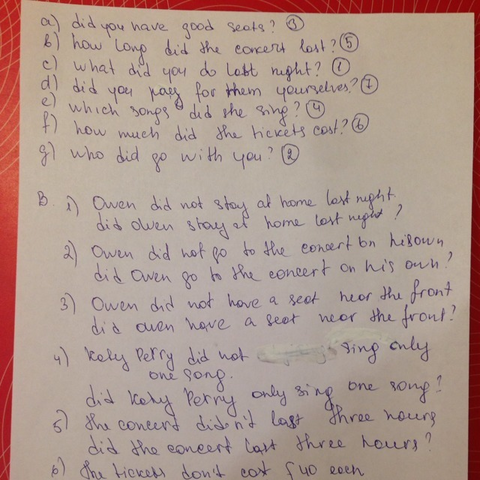 a) did you have good seats? 3
b) how long did the concert last? 5
c) what did you do last night? 1
d) did you pay for them yourselves? 7
e) which songs did she sing? 4
f) how much did the tickets cost? 6
g) who did go with you? 2
B 1) Owen did not stay at home last night.
did Owen stay at home last night?
2) Owen did not go to the concert on his own
did Owen go to the concert on his own?
3) Owen did not have a seat near the front
did owen have a seat near the front?
4) Katy Perry did not sing only
one song.
did Katy Perry only sing one song?
5) the concert didn't last three hours
did the concert last three hours?
6) the tickets don't cost £40 each